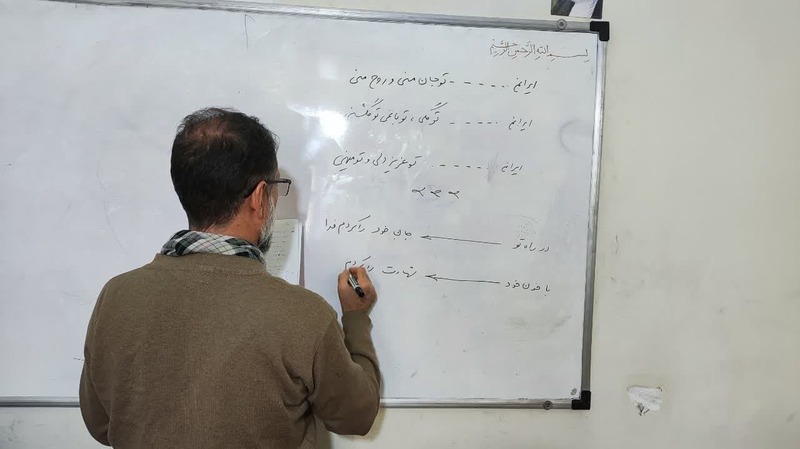 بسم الله الرحمن الرحیم
ایرانم - - - - - - تو جان منی و روح منی
ایرانم - - - - - تو گلی ، تو باغی تو گلشنی
ایرانم - - - - - - تو عزیز دلی و تو میهنی
در راه تو ← جان خود را کردم فدا
با خون خود ← شهادت را کردم